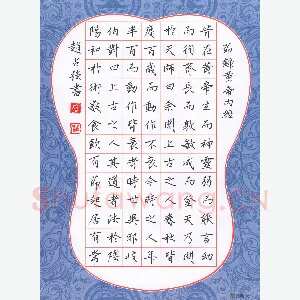 节録黄帝内經
昔在黄帝生而神靈弱而能言幼
而徇齊長而敦敏成而登天乃問
於天師曰余聞上古之人春秋皆
度百歲而動作不衰今時之人年
半百而動作皆衰者時世異耶岐
伯對曰上古之人其道者法於陰
陽和於術數食飲有節起居有常